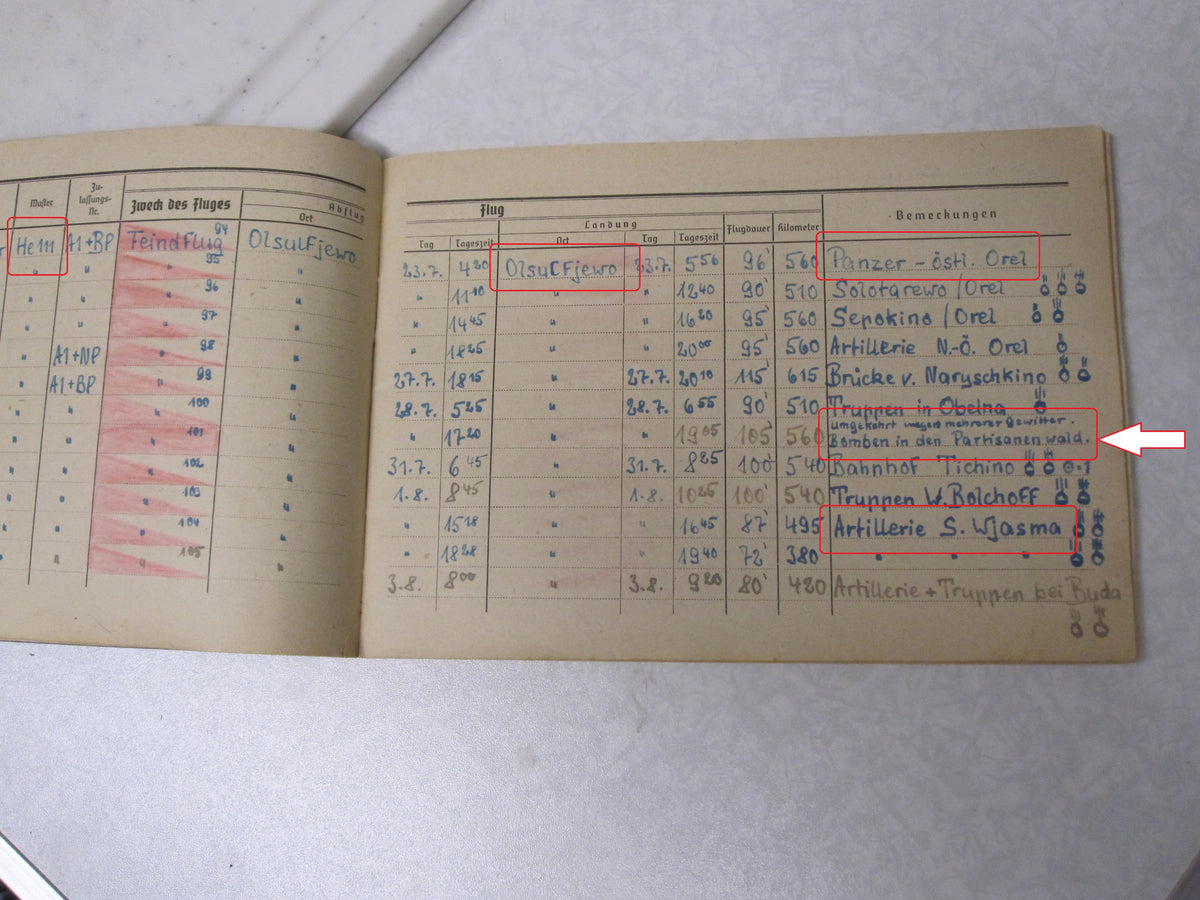 Muster Zu-
lassungs-
Nr. Zweck des Fluges Abflug
Ort
He 111 A1+BP Feindflug 94 Olsulfjewo
" " " 95 "
" " " 96 "
" " " 97 "
" A1+NP " 98 "
" A1+BP " 99 "
" " " 100 "
" " " 101 "
" " " 102 "
" " " 103 "
" " " 104 "
" " " 105 "
Flug Bemerkungen
Landung Flugdauer Kilometer
Tag Tageszeit Ort Tag Tageszeit
23.7. 4 20 Olsulfjewo 23.7. 5 56 96' 560 Panzer - östl. Orel
" 11 10 " " 12 40 90' 510 Solotarewo / Orel
" 14 45 " " 16 20 95' 560 Sepokino / Orel
" 18 25 " " 20 00 95' 560 Artillerie N.-Ö. Orel
27.7. 18 15 " 27.7. 20 10 115' 615 Brücke v. Naryschkino
28.7. 5 25 " 28.7. 6 55 90' 510 Truppen in Obelna
umgekehrt wegen mehrerer Gewitter.
" 17 20 " " 19 05 105' 560 Bomben in den Partisanenwald.
31.7. 6 45 " 31.7. 8 25 100' 540 Bahnhof Tichino
1.8. 8 45 " 1.8. 10 25 100' 540 Truppen W. Bolchoff
" 15 18 " " 16 45 87' 495 Artillerie S. Wjasma
" 18 28 " " 19 40 72' 380 " " "
3.8. 8 00 " 3.8. 9 20 80' 420 Artillerie + Truppen bei Buda